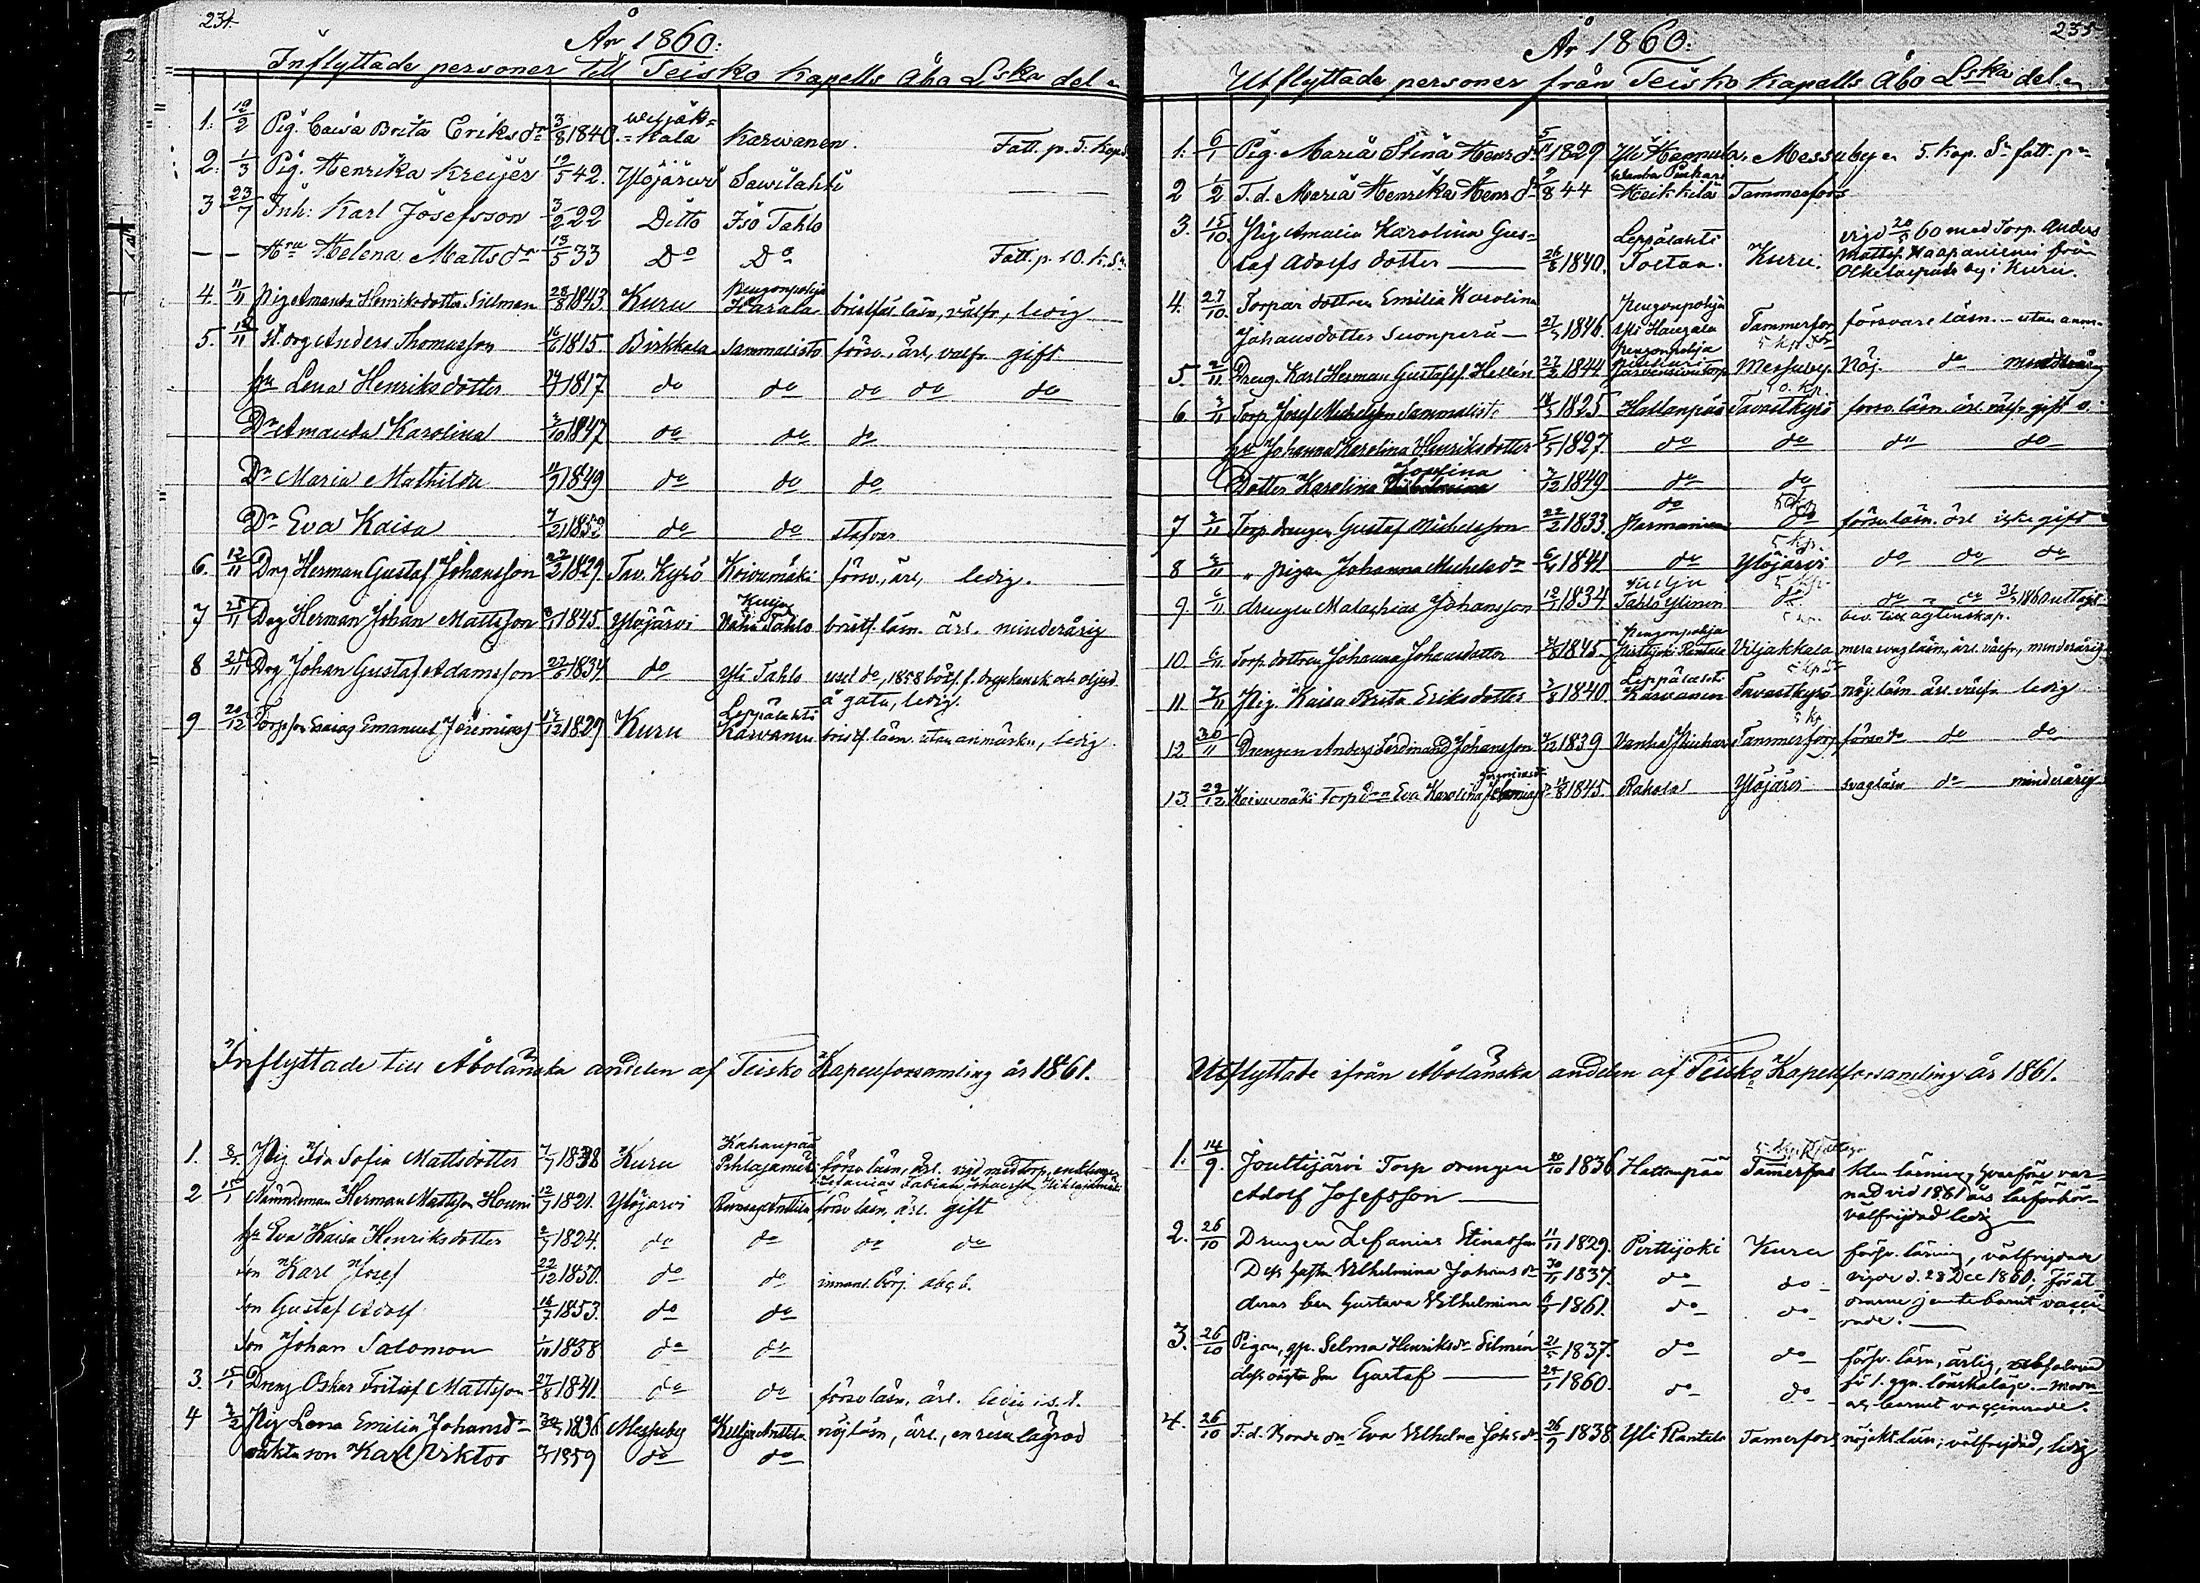 234.
År 1860:
Inflyttade personer till Teisko Kapells Åbo Lska del
1. 19/2 Pig. Caisa Brita Eriksdr 3/8 1840. Wiljak=kala Karwanen. Fatt. p. 5. Kop.
2. 1/3 Pig. Henrika Kreijer 19/5 42. Ylöjärwi Sawilahti
3 23/7 Inh: Karl Josefsson 3/2 22 Ditto Iso Tahlo
– – Hru Helena Mattsdr 13/5 33 Do Do Fatt. p. 10. K. Sr.
4. 11/11 Pig Amanda Henriksdotter Silman 28/8 1843 Kuru Pengonpohja Harala bristfäl. läsn, välfr, ledig
5. 18/11 Anders Thomasson 16/6 1815. Birkkala Sammalisto försv. ärl, valfr gift
hu Lena Henriksdotter 1817 do do do do do
Dr Amanda Karolina 3/10 1847 do do do
Dr Maria Mathilda 11/9 1849 do do do
Dr Eva Kaisa 7/2 1852 do do stafvar
6. 12/11 Drg Herman Gustaf Johansson 22/2 1829. Tav. Kyrö Koivumäki försv, ärl, ledig.
7 25/11 Drg Herman Johan Mattsson 1845. Ylöjärvi Kulju Vähä Tahlo bristf. läsn. ärl. minderårig
8 25/11 Drg Johan Gustaf Adamsson 27/6 1834 do Yli Tahlo 1858 böt. f. dryckensk och oljud
å gata, ledig.
9 20/12 Torpson Esaias Emanuel Jeremiass 1829 Kuru Leppälahti Karvanen bristf. läsn. utan anmärkn, ledig
Inflyttade till Åboländska andelen af Teisko Kapellförsamling år 1861.
1. Pig Ida Sofia Mattsdotter 7/7 1838 Kuru Kahanpää Pihlajamäki försv läsn, ärl. vigd med torp. enkling
Zefanias Fabian Johansson Pihlajamäki
2 15/1 Nämndeman Herman Mattsson Houni 12/7 1821. Ylöjärvi försv läsn, ärl. gift
hu Eva Kaisa Henriksdotter 1824. do do do do
son Karl Josef 22/12 1850. do do innant. börj. abcb.
son Gustaf Adolf 16/7 1853. do do
son Johan Salomon 1/10 1858 do do
3. 15/1 Dreng Oskar Fritiof Mattsson 27/8 1841. do do försv läsn. ärl. ledig
4 2/2 Pig Lena Emilia Johansdr 1836 Messuby Kulju Anttila nöj läsn, ärl., en resa lägrad
oäkta son Karl Viktor 1859 do do
235
År 1860.
Utflyttade personer från Teisko Kapells Åbo Lska del
1. 6/1 Pig. Maria Stina Henrdr 5/11 1829 Yli Hepnula. Messuby 5. Kap. Sr fatt. p
2 1/2 T. d. Maria Henrika Henrdr 9/8 44 Wanha Pirkari Heikkilä Tammerfors
3. 15/10 Pig Amalia Karolina Gus=
taf Adolfs dotter 26/8 1840. Leppälahti Toltaa. Kuru. vigd 20/5 60 med Torp. Anders
Mattss Haapaniemi från
by i Kuru.
4. 27/10. Torpar dottren Emilia Karolina
Johansdotter Suonperä 27/5 1846. Pengonpohja Yli Haugala Tammerfors försvarl läsn. utan anm.
5. 2/11 Dreng. Karl Herman Gustafss Hellén 27/2 1844 Pengonpohja Messuby. Nöj. do minderårig
6 Torp Josef Michelsson Sammalisto 18/3 1825. Hattanpää Tavastkyrö försv. läsn. ärl. välfr gift
hu Johanna Karolina Henriksdotter 5/5 1827. do do do do
Dotter Karolina Josefina 7/12 1849 do do
7 3/11 Torp. drengen Gustaf Michelsson 22/2 1833. do Hermanien do försv. läsn. ärl icke gift
8 Pigan Johanna Michelsdr 6/6 1841 do Ylöjärvi do do do
9 6/11 drengen Malachias Johansson 1834. Kulju Tahlo Ylinen do do do 1860 uttagit
bev. till ägtenskap.
10 6/11 Torp. dottren Johanna Johansdotter 1845. Pengonpohja Perttijoki Rantala Viljakkala mera svag läsn, ärl. välfr, minderårig
11 7/11 Pig. Kaisa Brita Eriksdotter 3/8 1840. Leppälahti Karvanen Tavastkyrö nöj. läsn ärl välfr ledig
12 30/11 Drengen Anders Ferdinand Johansson 1839 Vanha Pirkari Tammerfors försv do do do
13 29/12 Koivumäki Torp drn Eva Karolina Jeremiasdr 1845. Rahola Ylöjärvi svag läsn do minderårig
Utflyttade ifrån Åboländska andelen af Teisko Kapellförsamling år 1861.
1. 14/9. Joultijärvi Torp drengen 20/10 1836 Hattanpää Tamerfors klen läsning, hvarföre var-
Adolf Josefsson nad vid 1861 års läsförhör
välfrejdad ledig
2. 26/10 Drengen Zefanias Stinasson 11/11 1829. Perttijoki Kuru försv. läsning, välfrejdade
Dess hustru Vilhelmina Johansdr 1837. do do vigde d. 28 Dec 1860; föräl
deras barn Gustava Vilhelmina 1861. do do drarne jemte barnet vacci
nade.
3. 26/10 Pigan, qp. Selma Henriksdr Silmén 21/5 1837. do do försv. läsn, ärlig, absolverad
dess oägta son Gustaf 1860. do do för 1. ggn. lönskaläge.
och barnet vaccinerade.
4. 26/10 T. d. Bonde dr Eva Vilhelma Johsdr 26/9 1838 Yli Rantala Tamerfors nöjakt. läsn, välfrejdad, ledig